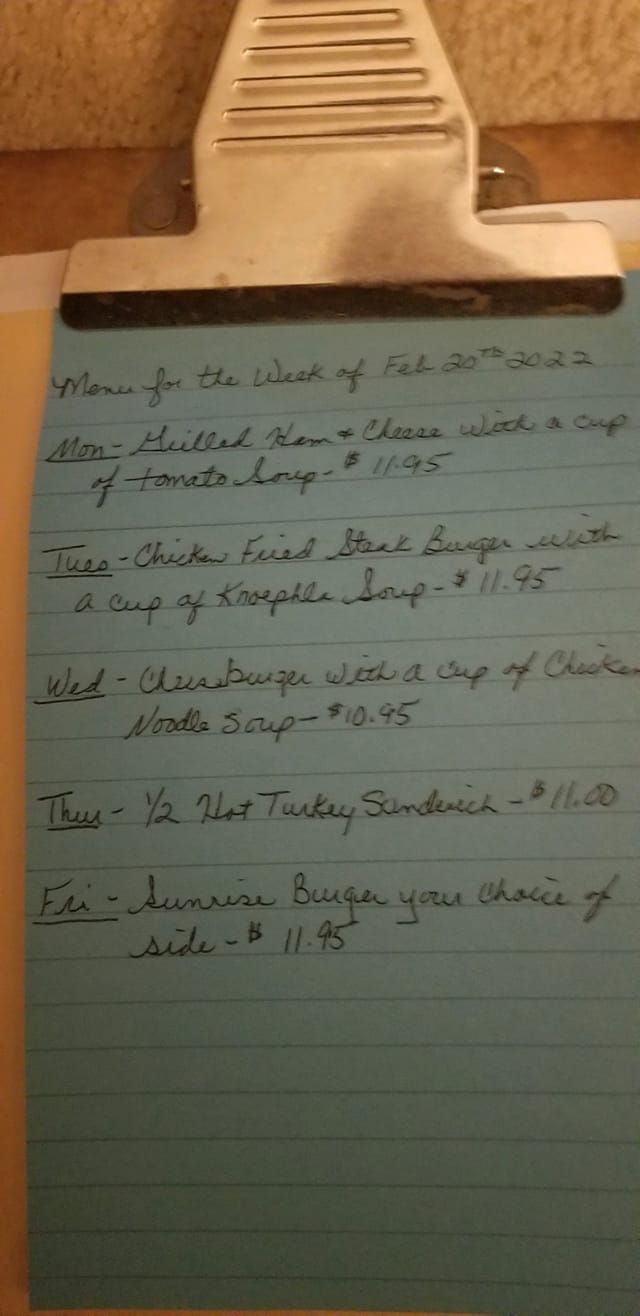 Menu for the Week of Feb 20TH 2022
Mon - Grilled Ham & Cheese with a cup
of tomato Soup - $ 11.95
Tues - Chicken Fried Steak Burger with
a cup of Knoephla Soup - $ 11.95
Wed - Cheeseburger with a cup of Chicken
Noodle Soup - $10.95
Thur - 1/2 Hot Turkey Sandwich - $ 11.00
Fri - Sunrise Burger your choice of
side - $ 11.95